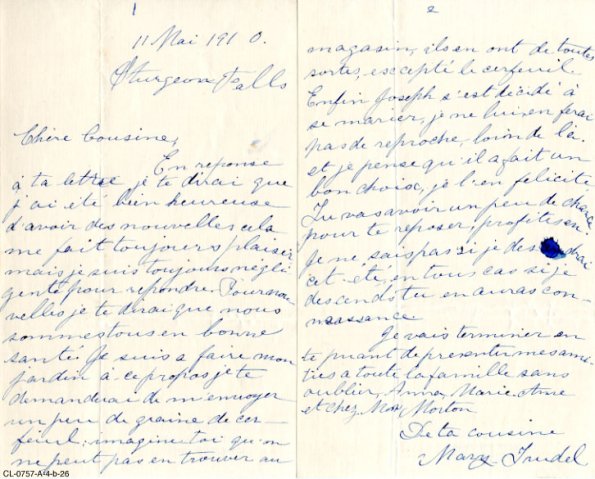 1
11 Mai 1910.
Sturgeon Falls
Chère Cousine,
En reponse
à ta lettre je te dirai que
j'ai été bien heureuse
d'avoir des nouvelles cela
me fait toujours plaisir
mais je suis toujours négli
gente pour répondre. Pour nou
velles je te dirai que nous
sommes tous en bonne
santé. Je suis a faire mon
jardin à ce propos je te
demanderai de m'envoyer
un peu de graine de cer-
feuil; imagine toi qu'on
ne peut pas en trouver au
CL-0757-A-4-b-26
2
magasin, ils en ont de toutes
sortes, excepté le cerfeuil.
Enfin Joseph s'est décidé à
se marier, je ne lui en ferai
pas de reproche, loin de là.
et je pense qu'il a fait un
bon choix, je l'en felicite
Tu vas avoir un peu de chance
pour te reposer, profites en.
je ne sais pas si je des drai
cet été, en tous cas si je
descends tu en auras con-
naissance
Je vais terminer en
te priant de presenter mes ami-
ties a toute la famille sans
oublier, Anna, Marie-Anne
et chez Morton.
De ta cousine
Mary Trudel